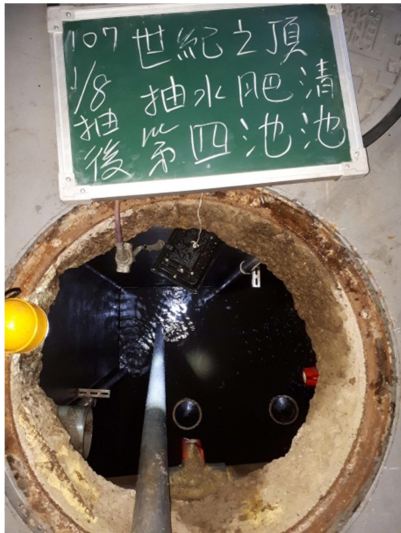 107 世紀之頂
1/8 抽水肥清
抽後第四池池